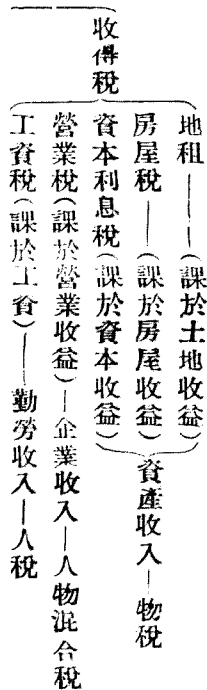 收得稅
地租———(課於土地收益)
房屋稅——(課於房屋收益)
資本利息稅(課於資本收益)
資產收入—物稅
營業稅(課於營業收益)—企業收入—人物混合稅
工資稅(課於工資)——勤勞收入—人稅